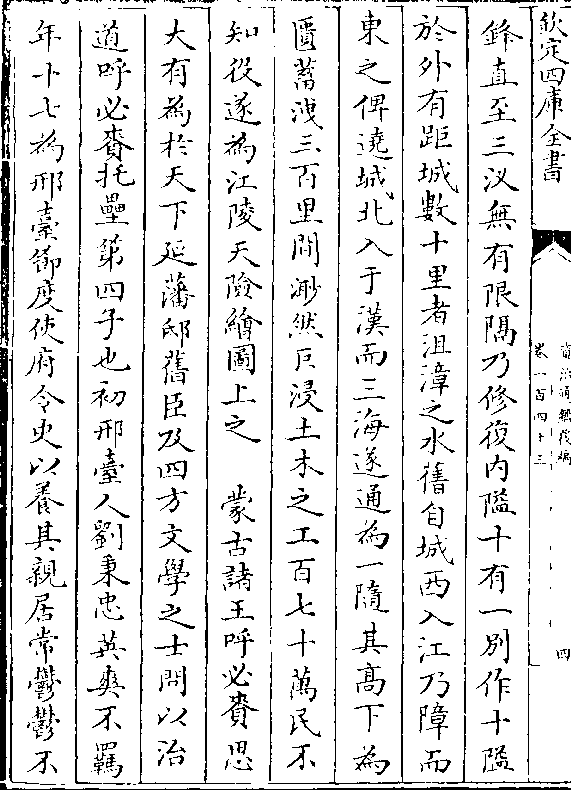 欽定四庫全書
資治通鑑後編
卷一百四十三
四
鋒直至三汊無有限隔乃修復内隘十有一別作十隘
於外有距城數十里者沮漳之水舊自城西入江乃障而
東之俾遶城北入于漢而三海遂通為一隨其髙下為
匱蓄洩三百里間渺然巨浸土木之工百七十萬民不
知役遂為江陵天險繪圖上之　蒙古諸王呼必賚思
大有為於天下延藩邸舊臣及四方文學之士問以治
道呼必賚托壘第四子也初邢臺人劉秉忠英爽不羈
年十七為邢臺節度使府令史以養其親居常鬱鬱不